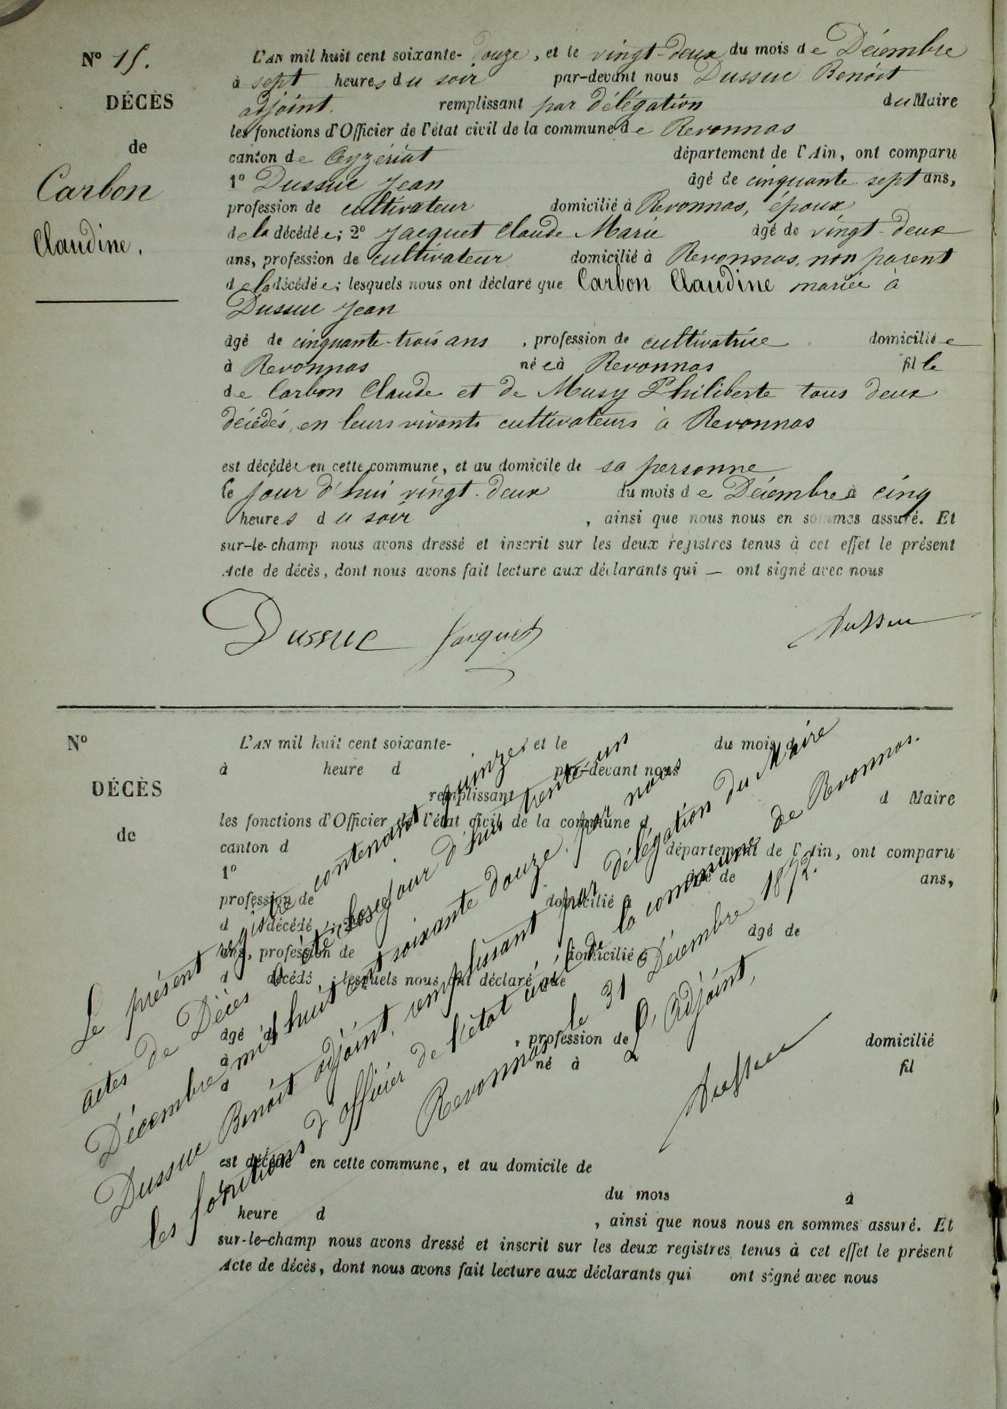 N° 15.
DÉCÈS
de
Carbon
Claudine.
L'AN mil huit cent soixante- douze, et le vingt-deux du mois de Décembre
à sept heures du soir par-devant nous Dussuc Benoît
adjoint remplissant par délégation du Maire
les fonctions d'Officier de l'état civil de la commune de Revonnas
canton de Ceyzériat département de l'Ain, ont comparu
1° Dussuc Jean âgé de cinquante sept ans,
profession de cultivateur domicilié à Revonnas, époux
de la décédée; 2° Jacquet Claude Marie âgé de vingt-deux
ans, profession de cultivateur domicilié à Revonnas, non parent
de la décédée; lesquels nous ont déclaré que Carbon Claudine mariée à
Dussuc Jean
âgé de cinquante-trois ans, profession de cultivatrice domiciliée
à Revonnas née à Revonnas fille
de Carbon Claude et de Musy Philiberte tous deux
décédés, en leurs vivants cultivateurs à Revonnas
est décédée en cette commune, et au domicile de sa personne
le jour d'hui vingt-deux du mois de Décembre à cinq
heures du soir, ainsi que nous nous en sommes assuré. Et
sur-le-champ nous avons dressé et inscrit sur les deux registres tenus à cet effet le présent
Acte de décès, dont nous avons fait lecture aux déclarants qui — ont signé avec nous
Dussuc Jacquet Dussuc
N°
DÉCÈS
de
L'AN mil huit cent soixante- et le du mois d
à heure d par-devant nous
remplissant d Maire
les fonctions d'Officier de l'état civil de la commune d
canton d département de l'Ain, ont comparu
1° âgé de ans,
profession de domicilié à
d décédé ; 2° âgé de
ans, profession de domicilié à
d décédé ; lesquels nous ont déclaré que
âgé d , profession de domicilié
à né à fil
d
est décédé en cette commune, et au domicile de
le du mois à
heure d , ainsi que nous nous en sommes assuré. Et
sur-le-champ nous avons dressé et inscrit sur les deux registres tenus à cet effet le présent
Acte de décès, dont nous avons fait lecture aux déclarants qui ont signé avec nous
Le présent registre contenant quinze
actes de Décès a été clos ce jour d'hui trente-un
Décembre mil huit cent soixante douze, par nous
Dussuc Benoît adjoint, remplissant par délégation du Maire
les fonctions d'officier de l'état civil de la commune de Revonnas.
Revonnas le 31 Décembre 1872.
L'Adjoint,
Dussuc